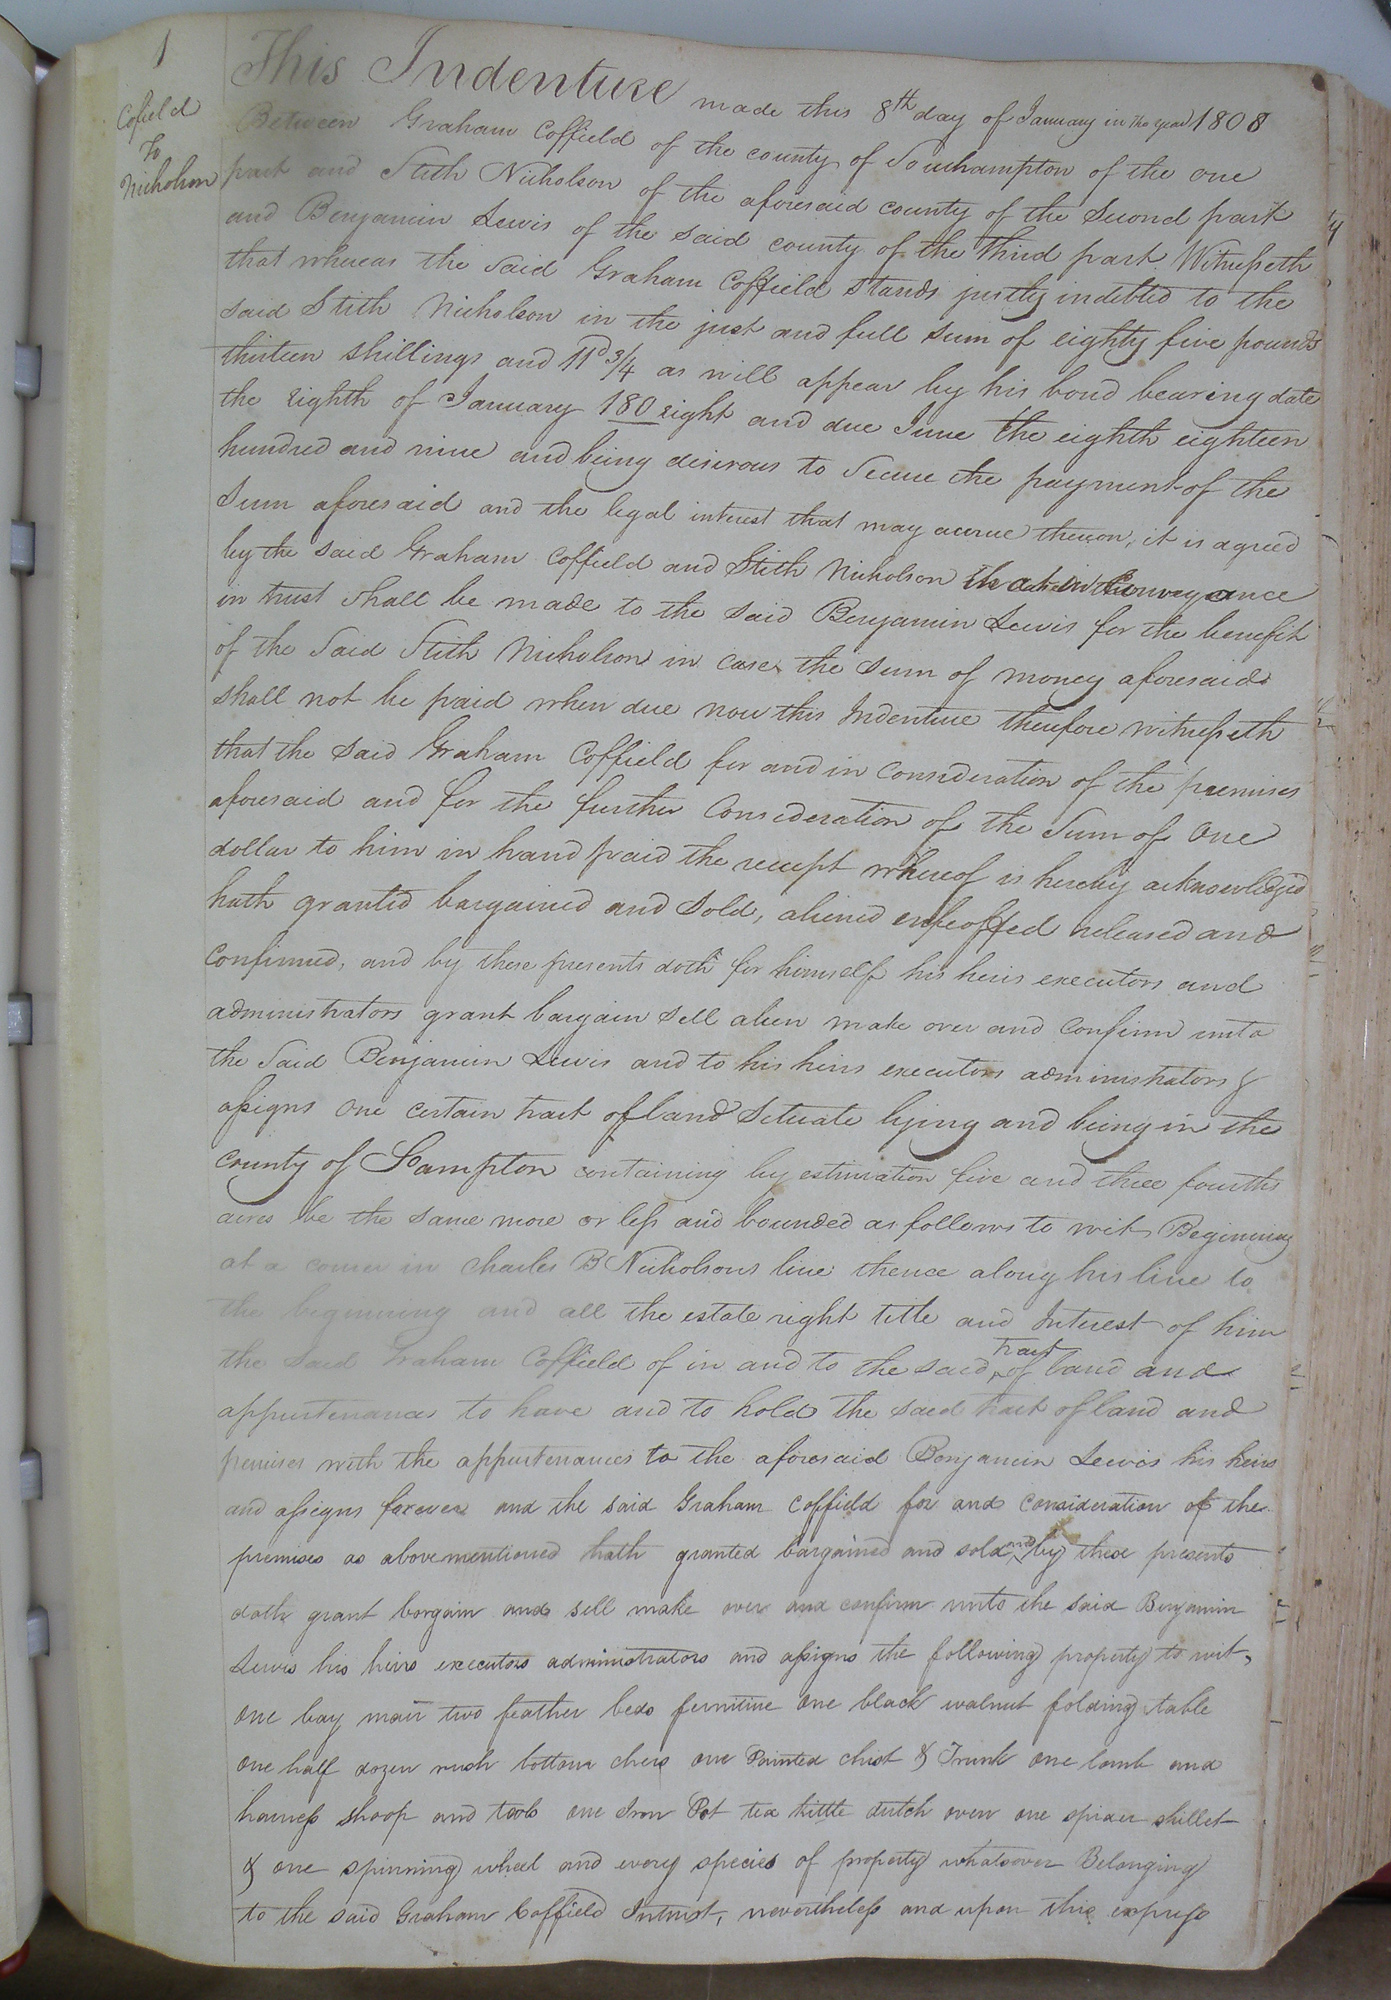 1
Cofield
To
Nicholson
This Indenture made this 8th day of January in the year 1808
Between Graham Coffield of the county of Southampton of the one
part and Stith Nicholson of the aforesaid county of the Second part
and Benjamin Lewis of the said county of the third part Witnesseth
that whereas the said Graham Coffield stands justly indebted to the
said Stith Nicholson in the just and full sum of eighty five pounds
thirteen shillings and 11d 3/4 as will appear by his bond bearing date
the Eighth of January 180 eight and due June the eighth eighteen
hundred and nine and being desirous to Secure the payment of the
Sum aforesaid and the legal interest that may accrue thereon, it is agreed
by the said Graham Coffield and Stith Nicholson that Conveyance
in trust Shall be made to the said Benjamin Lewis for the benefit
of the Said Stith Nicholson in case the sum of money aforesaid
shall not be paid when due now this Indenture therefore witnesseth
that the said Graham Coffield for and in Consideration of the premises
aforesaid and for the further Consideration of the Sum of One
dollar to him in hand paid the receipt whereof is hereby acknowledged
hath granted bargained and Sold, aliened enfeoffed released and
Confirmed, and by these presents doth for himself his heirs executors and
administrators grant bargain Sell alien make over and Confirm unto
the Said Benjamin Lewis and to his heirs executors administrators &
assigns One certain tract of land Situate lying and being in the
County of Sampton containing by estimation five and three fourths
acres be the same more or less and bounded as follows to wit Beginning
at a corner in Charles B Nicholsons line thence along his line to
the beginning and all the estate right title and Interest of him
the said Graham Coffield of in and to the said tract of land and
appurtenances to have and to hold the said tract of land and
premises with the appurtenances to the aforesaid Benjamin Lewis his heirs
and assigns forever and the said Graham Coffield for and consideration of the
premises as abovementioned hath granted bargained and sold and by these presents
doth grant bargain and sell make over and confirm unto the said Benjamin
Lewis his heirs executors administrators and assigns the following property to wit,
one bay mair two feather beds furniture one black walnut folding table
one half dozen rush bottom chers one Painted chist & Trunk one lomb and
harness shoop and tools one Iron Pot tea kittle dutch oven one spider skillet
& one spinning wheel and every species of property whatsoever Belonging
to the said Graham Coffield Intrust, nevertheless and upon this express